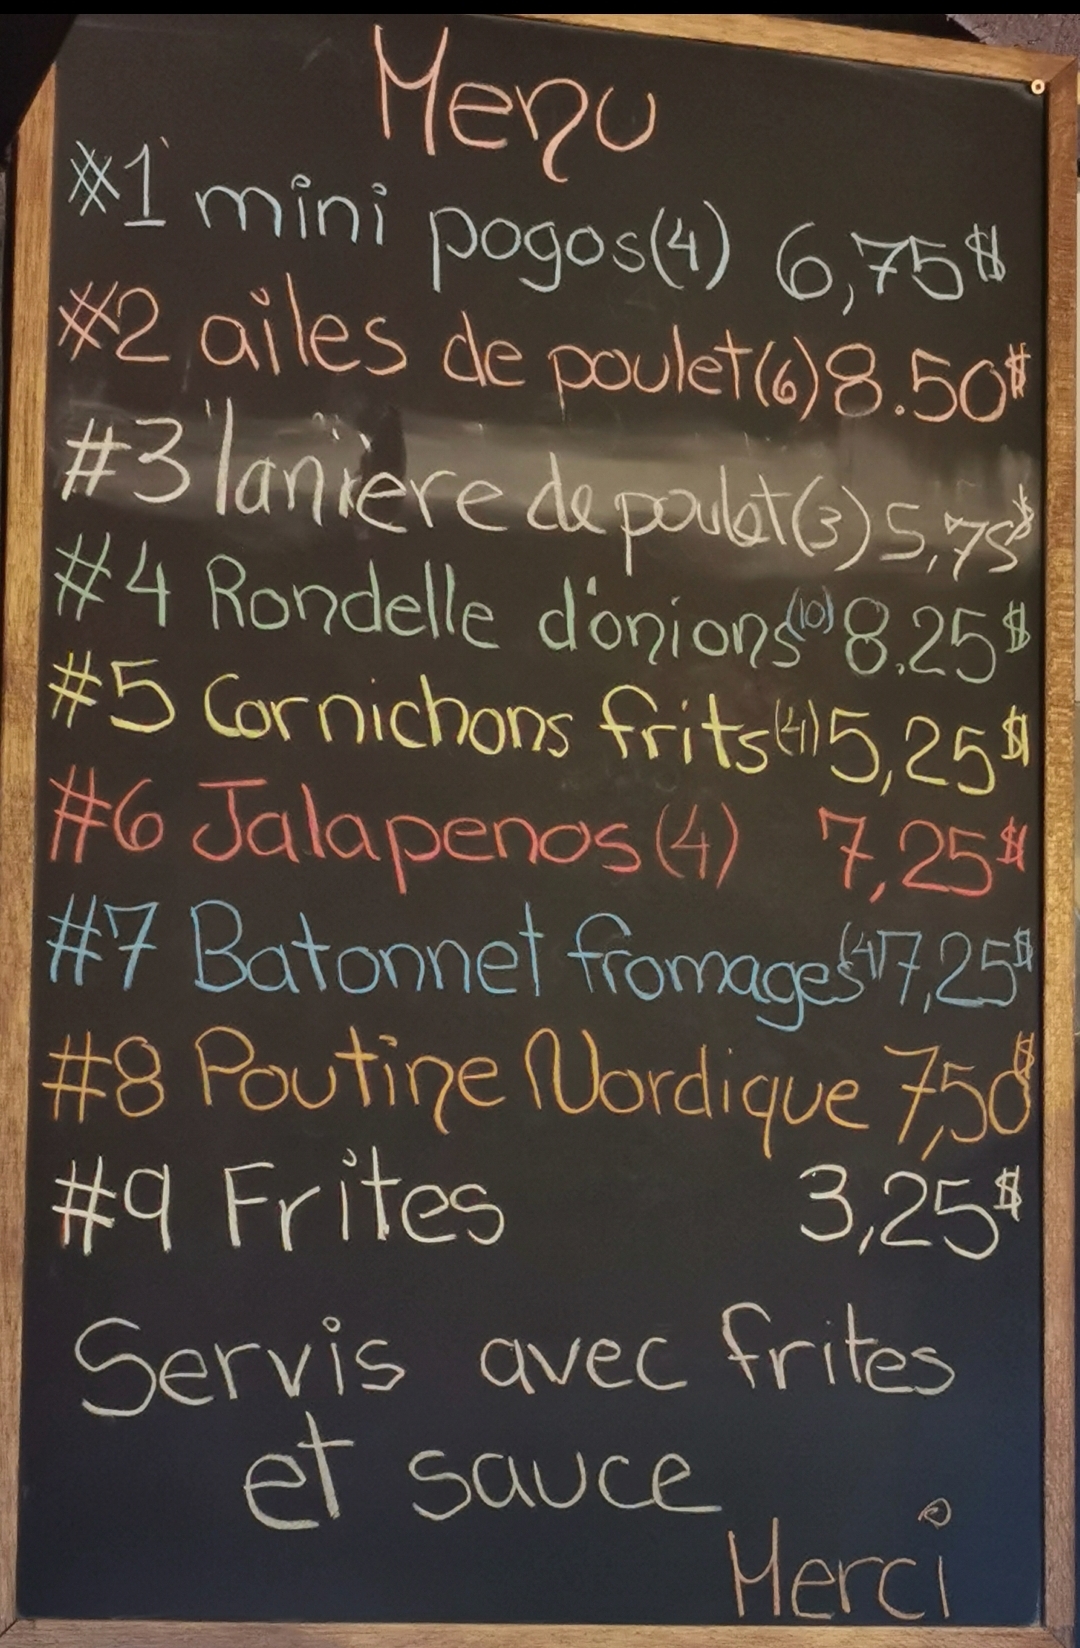 Menu
#1 mini pogos(4) 6,75$
#2 ailes de poulet(6) 8.50$
#3 lanière de poulet(3) 5,75$
#4 Rondelle d'onions(10) 8.25$
#5 Cornichons frits(4) 5,25$
#6 Jalapenos(4) 7,25$
#7 Batonnet fromages(4) 7,25$
#8 Poutine Nordique 7,50$
#9 Frites 3,25$
Servis avec frites
et sauce
Merci